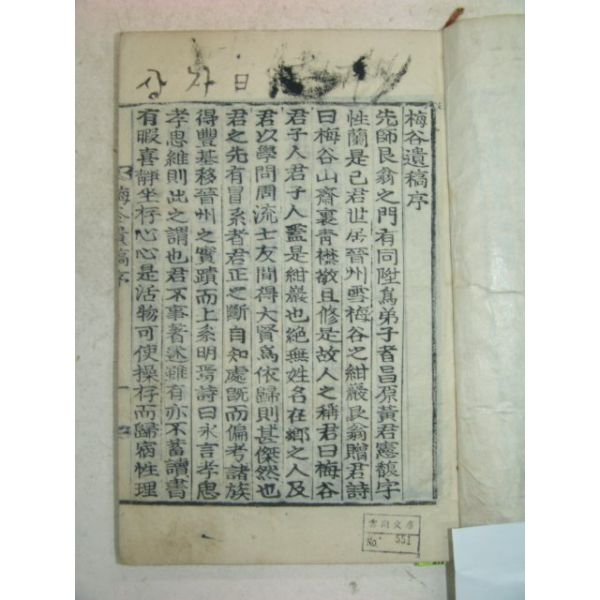 상자日
梅谷遺稿序
先師艮翁之門有同陞爲弟子者昌原黃君憲馥字
性蘭是已君世居晉州雪梅谷之紺巖艮翁贈君詩
曰梅谷山齋裏靑襟敬且修是故人之稱君曰梅谷
君子人君子人盖是紺巖也絶無姓名在鄕之人及
君以學問周流士友間得大賢爲依歸則甚傑然也
君之先有冒系者君正之斷自知處旣而偏考諸族
得豐基移晉州之實蹟而上系明焉詩曰永言孝思
孝思維則此之謂也君不事著述雖有亦不蓄讀書
有暇喜靜坐存心心是活物可使操存而歸宿性理
梅谷遺稿序 一
雲岡文庫
No. 551